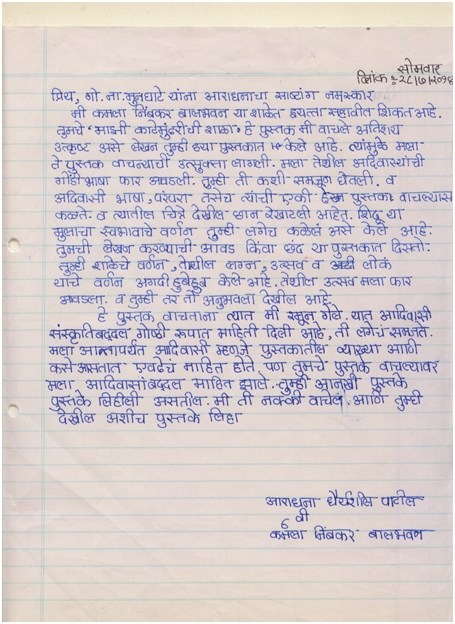 सोमवार
दिनांक :- २८/७/२०१४
प्रिय, गो. ना. मुनघाटे यांना आराधनाचा साष्टांग नमस्कार
मी कमला निंबकर बालभवन या शाळेत इयत्ता सहावीत शिकत आहे.
तुमचे 'माझी काटेमुंढरीची शाळा' हे पुस्तक मी वाचले अतिशय
उत्कृष्ट असे लेखन तुम्ही ह्या पुस्तकात केले आहे. त्यांमुळे मला
ते पुस्तक वाचण्याची उत्सुक्ता लागली. मला तेथील आदिवास्यांची
गोंडी भाषा फार आवडली. तुम्ही ती कशी समजून घेतली. व
आदिवासी भाषा, परंपरा तसेच त्यांची एकी पुस्तक वाचल्यास
कळते. व त्यातील चित्रे देखील छान रेखाटली आहेत. शिदू या
मुलाचा स्वभावाचे वर्णन तुम्ही लगेच कळेल असे केले आहे.
तुमची लेखन करण्याची आवड किंवा छंद या पुस्तकात दिसतो.
तुम्ही शाळेचे वर्णन, तेथील लग्न, उत्सव व लोकं
याचे वर्णन अगदी हुबेहुब केले आहे. तेथील उत्सव मला फार
आवडला. व तुम्ही तर तो अनुभवला देखील आहे.
हे पुस्तक वाचताना त्यात मी रमून गेले. यात आदिवासी
संस्कृतिबद्दल गोष्टी रूपात माहिती दिली आहे, ती लगेच समजते.
मला आत्तापर्यंत आदिवासी म्हणजे पुस्तकातील व्याख्या आणि
कसे असतात एवढेच माहित होते पण तुमचे पुस्तके वाचल्यावर
मला आदिवासांबद्दल माहित झाले. तुम्ही आनखी पुस्तके
पुस्तके लिहीली असतील. मी ती नक्की वाचेल. आणि तुम्ही
देखील अशीच पुस्तके लिहा
आराधना धैर्यशील पाटील
६ वी
कमला निंबकर बालभवन